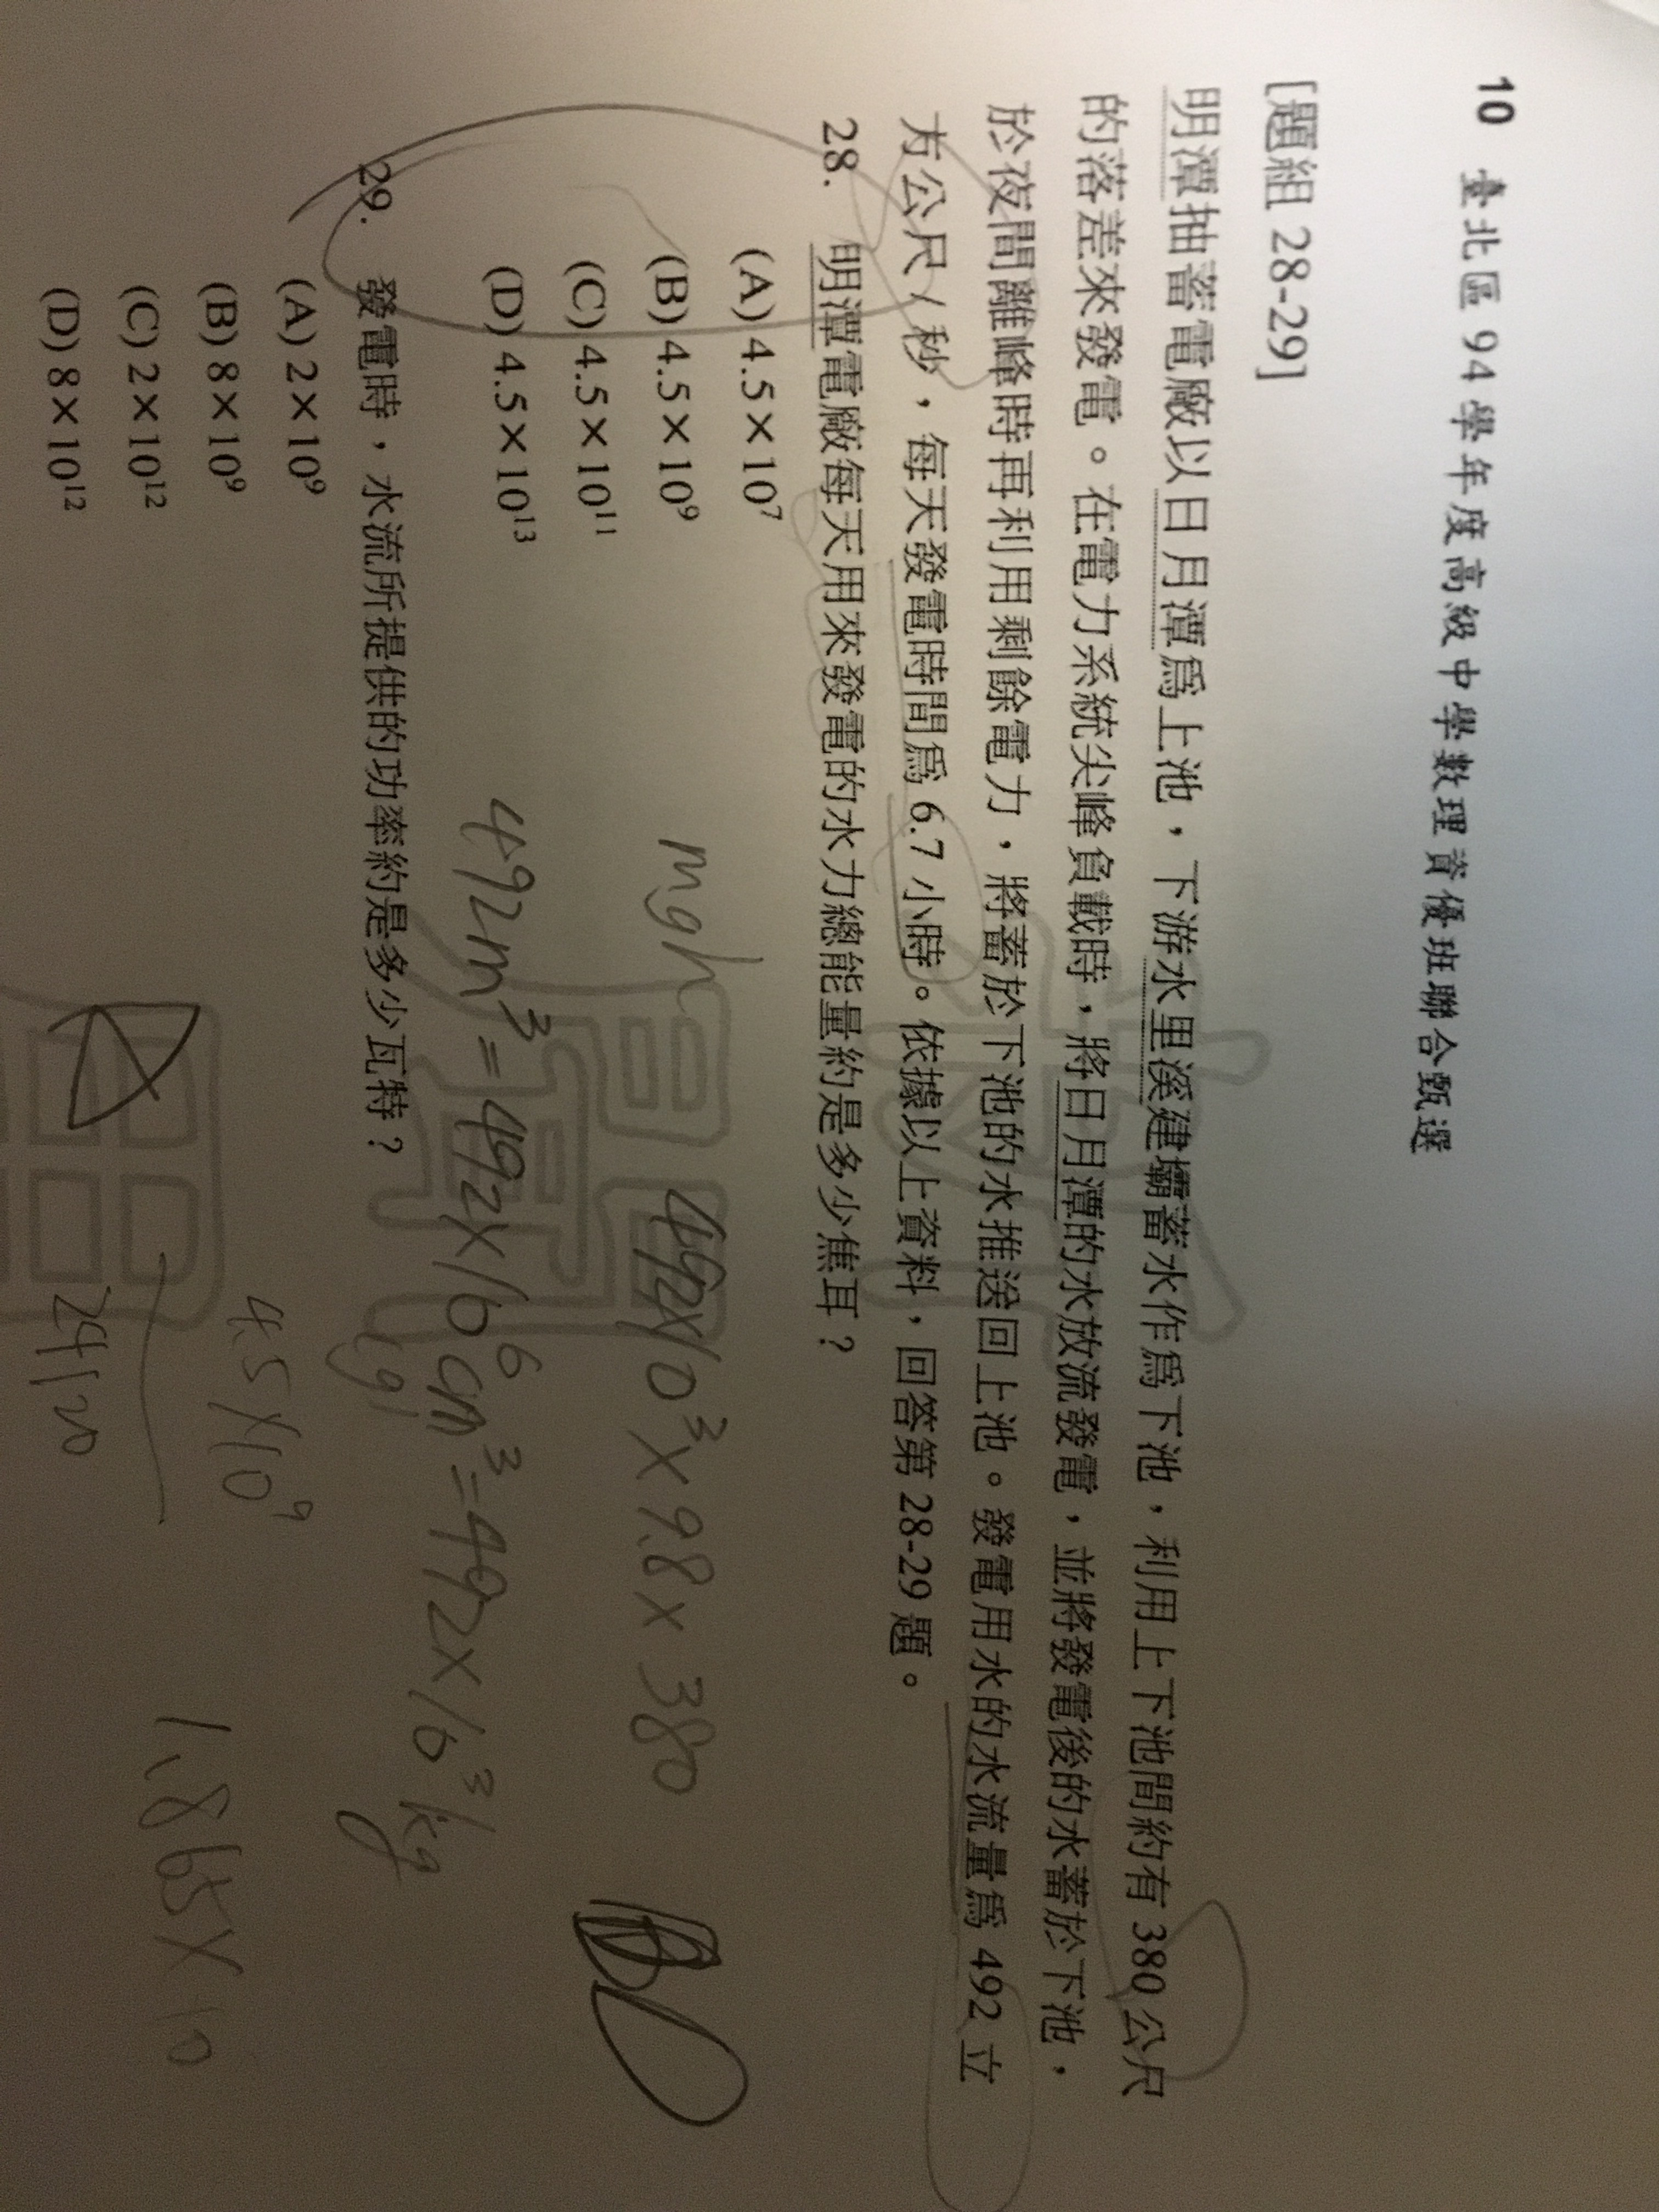 10 臺北區 94 學年度高級中學數理資優班聯合甄選
[題組 28-29]
明潭抽蓄電廠以日月潭為上池，下游水里溪建壩蓄水作為下池，利用上下池間約有 380 公尺
的落差來發電。在電力系統尖峰負載時，將日月潭的水放流發電，並將發電後的水蓄於下池，
於夜間離峰時再利用剩餘電力，將蓄於下池的水推送回上池。發電用水的水流量為 492 立
方公尺／秒，每天發電時間為 6.7 小時。依據以上資料，回答第 28-29 題。
28. 明潭電廠每天用來發電的水力總能量約是多少焦耳？
(A) 4.5×10⁷
(B) 4.5×10⁹
(C) 4.5×10¹¹
(D) 4.5×10¹³
mgh 492×10³×9.8×380
492m³=492×10⁶cm³=492×10³kg
29. 發電時，水流所提供的功率約是多少瓦特？
(A) 2×10⁹
(B) 8×10⁹
(C) 2×10¹²
(D) 8×10¹²
4.5×10⁹
24120
1.865×10